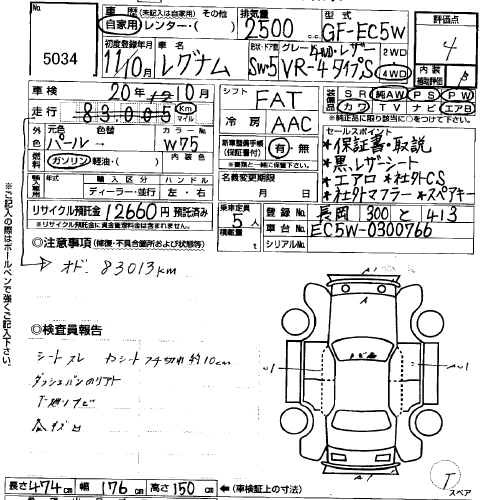 No.
5034
車歴 (未記入は自家用) その他
自家用・レンター・( )
排気量
2500 cc
型式
GF-EC5W
評価点
4
初度登録年月
11年10月
車名
レグナム
型状・ドア数
SW・5
グレード
4WD・レザー
VR-4 タイプS
2WD
4WD
内装
補助評価
B
車検
20年 10月
走行
83,005
Km
マイル
シフト
FAT
冷房
AAC
装備品
SR 純AW PS PW
カワ TV ナビ エアB
*純正品に限り該当に○をつけて下さい
外色
元色
パール
色替
カラーNo
W75
燃料
ガソリン・軽油・( )
内装色
輸入車
年式
輸入区分
ディーラー・並行
ハンドル
左・右
新車整備手帳
(保証書付)
有・無
*書類と一緒に保管して下さい。
名義変更期限
月 日
セールスポイント
*保証書・取説
*黒レザーシート
*エアロ *社外C.S
*社外マフラー *スペアキー
リサイクル預託金 12660円 預託済み
*リサイクル預託金に資金管理料金は含まれません。
乗車定員
5人
積載量
t
登録No.
長岡 300 と 413
車台No.
EC5W-0300766
シリアルNo.
◎注意事項 (修復・不具合箇所および状態等)
オド. 83013km
◎検査員報告
シートスレ
約10cm
※ご記入の際はボールペンで強くご記入下さい。
長さ 474cm 幅 176cm 高さ 150cm
←(車検証上の寸法)
T
スペア